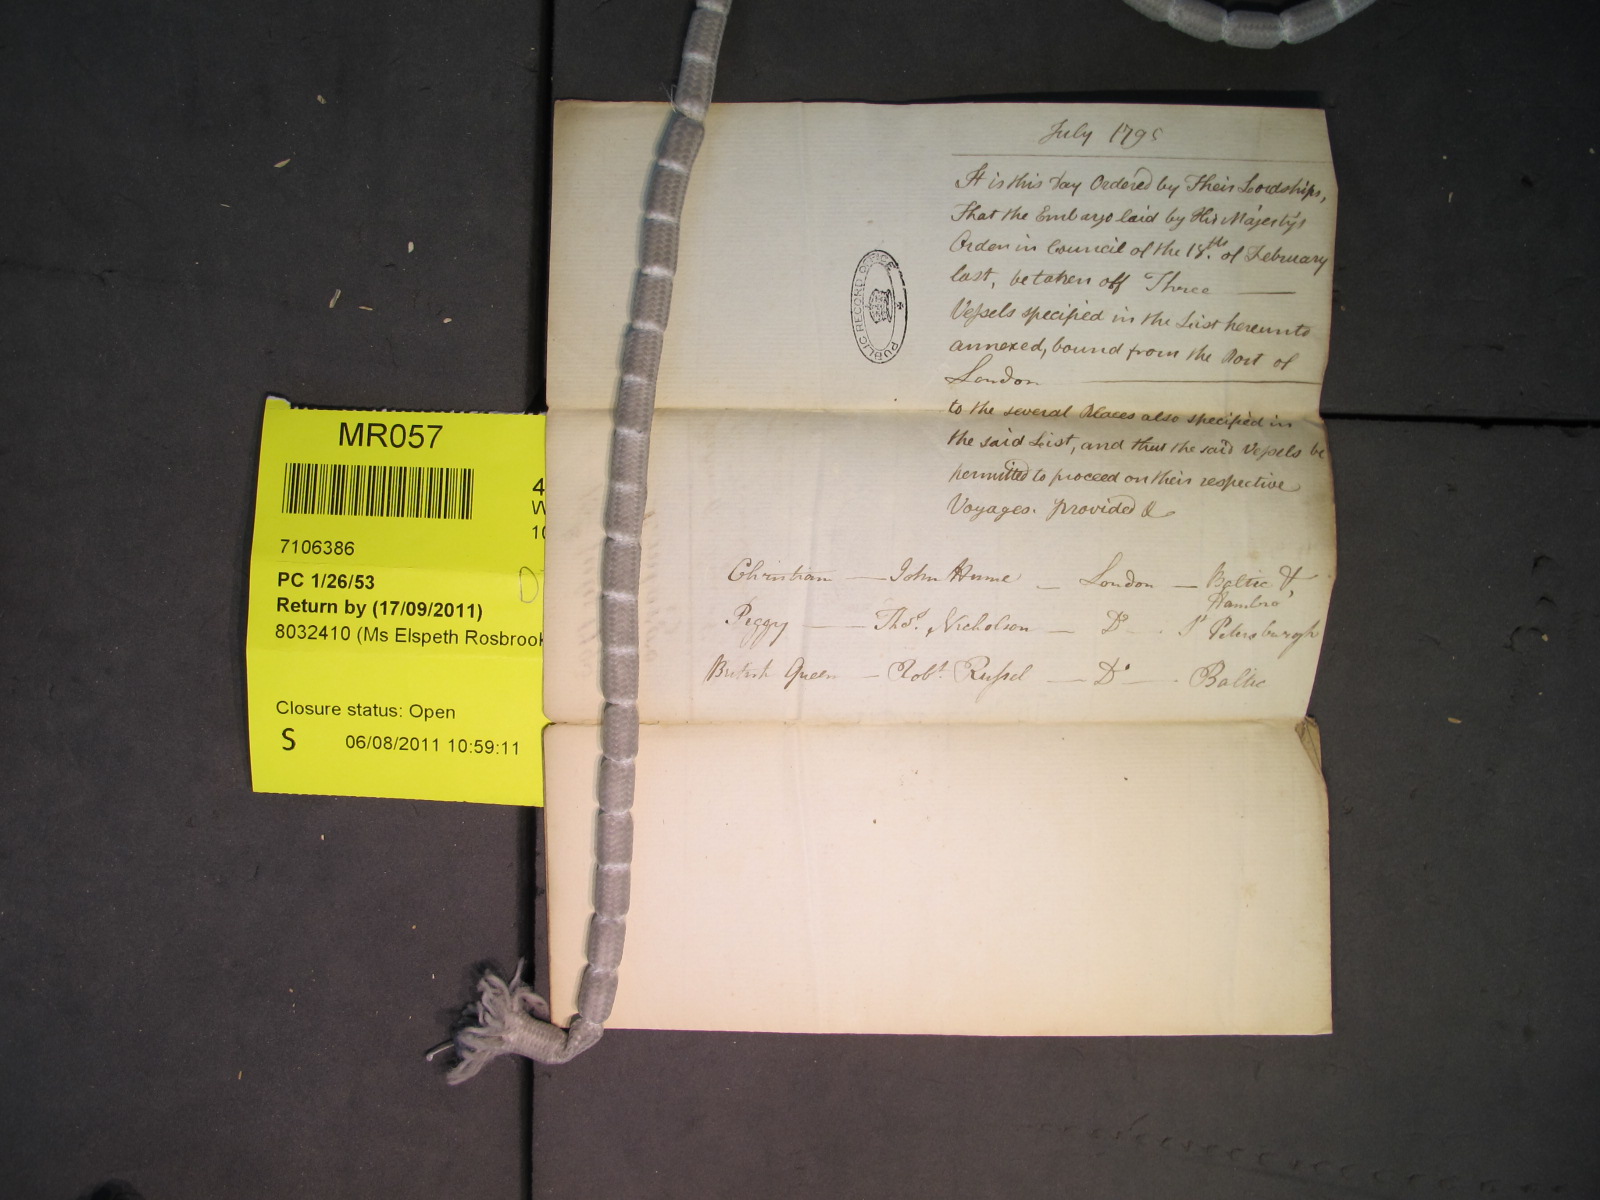 July 1795
It is this Day Ordered by Their Lordships,
That the Embargo laid by His Majesty's
Order in Council of the 18th. of February
last, be taken off Three
Vessels specified in the List hereunto
annexed, bound from the Port of
London
to the several Places also specified in
the said List, and that the said Vessels be
permitted to proceed on their respective
Voyages. provided &
Christian — John Hume — London — Baltic &
Hambro'
Peggy — Thos. Nicholson — Do — St Petersburgh
British Queen — Robt. Russel — Do — Baltic
PUBLIC RECORD OFFICE
MR057
4
W
10
7106386
PC 1/26/53
D
Return by (17/09/2011)
8032410 (Ms Elspeth Rosbrook
Closure status: Open
S 06/08/2011 10:59:11